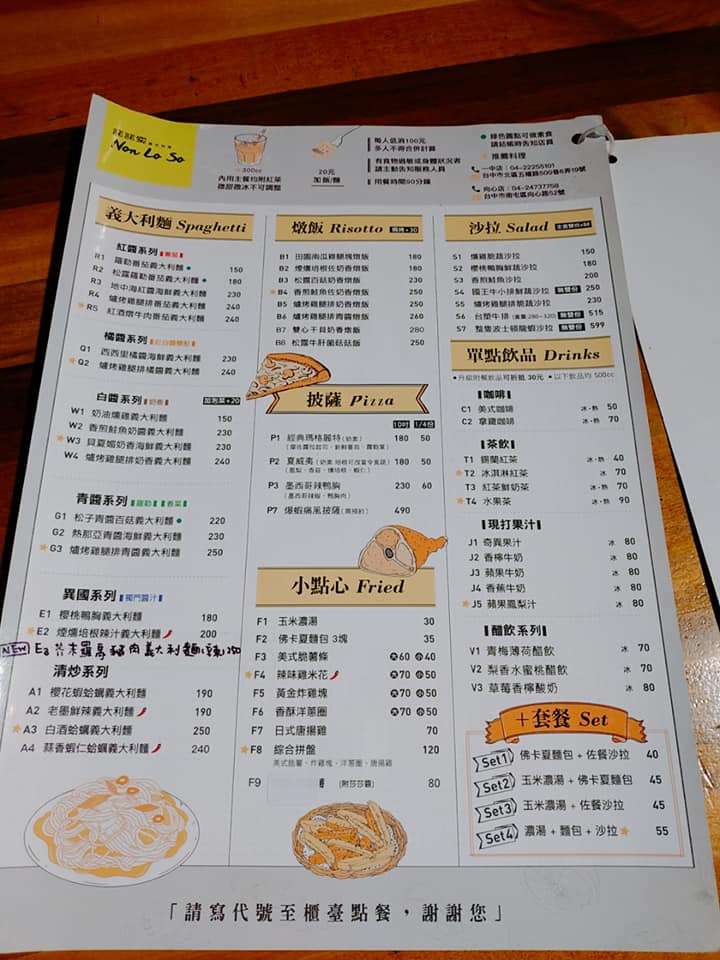 諾諾索
Non Lo So
300cc
內用主餐均附紅茶
微甜微冰不可調整
20元
加飯/麵
每人低消100元
多人不得合併計算
有食物過敏或身體狀況者
請主動告知服務人員
用餐時間90分鐘
綠色圓點可做素食
請結帳時告知店員
推薦料理
一中店：04-22255101
向心店：04-24737758
台中市南屯區向心路52號
義大利麵 Spaghetti
紅醬系列 蕃茄
R1 羅勒番茄義大利麵 150
R2 松露羅勒番茄義大利麵 180
R3 地中海紅醬海鮮義大利麵 230
R4 爐烤雞腿排番茄義大利麵 240
R5 紅酒燉牛肉番茄義大利麵 240
橘醬系列 紅白醬雙拼
Q1 西西里橘醬海鮮義大利麵 230
Q2 爐烤雞腿排橘醬義大利麵 240
白醬系列 奶香 加泡菜+20
W1 奶油燻雞義大利麵 150
W2 香煎鮭魚奶醬義大利麵 230
W3 貝夏媚奶香海鮮義大利麵 230
W4 爐烤雞腿排奶香義大利麵 240
青醬系列 羅勒 香菜
G1 松子青醬百菇義大利麵 220
G2 熱那亞青醬海鮮義大利麵 240
G3 爐烤雞腿排青醬義大利麵 250
異國系列 獨門醬汁
E1 櫻桃鴨胸義大利麵 180
E2 煙燻培根辣汁義大利麵 200
NEW E3 芥末羅馬豬肉義大利麵 小辣 250
清炒系列
A1 櫻花蝦蛤蠣義大利麵 190
A2 老墨鮮辣義大利麵 190
A3 白酒蛤蠣義大利麵 250
A4 蒜香蝦仁蛤蠣義大利麵 240
燉飯 Risotto 焗烤+30
B1 田園南瓜雞腿塊燉飯 180
B2 煙燻培根佐奶香燉飯 180
B3 松露百菇奶香燉飯 230
B4 香煎鮭魚佐奶香燉飯 250
B5 爐烤雞腿排奶香燉飯 250
B6 爐烤雞腿排青醬燉飯 250
B7 雙心干貝奶香燉飯 280
B8 松露牛肝菌菇菇飯 250
披薩 Pizza
10吋 1/4份
P1 經典瑪格麗特(奶素) 180 50
P2 夏威夷 180 50
P3 墨西哥辣鴨胸 230 60
(墨西哥辣椒、鴨胸肉)
P7 爆蝦痛風披薩(需預約) 490
小點心 Fried
F1 玉米濃湯 30
F2 佛卡夏麵包 3塊 35
F3 美式脆薯條 大60 小40
F4 辣味雞米花 大70 小50
F5 黃金炸雞塊 大70 小50
F6 香酥洋蔥圈 大70 小50
F7 日式唐揚雞 70
F8 綜合拼盤 120
美式脆薯、炸雞塊、洋蔥圈、唐揚雞
F9 (附莎莎醬) 80
沙拉 Salad 主食雙炸+84
S1 燻雞脆蔬沙拉 150
S2 櫻桃鴨胸鮮蔬沙拉 180
S3 香煎鮭魚沙拉 200
S4 國王牛小排鮮蔬沙拉 無雙份 250
S5 爐烤雞腿排脆蔬沙拉 230
S6 台塑牛排(實重280~320) 無雙份 515
S7 整隻波士頓龍蝦沙拉 無雙份 599
單點飲品 Drinks
升級附餐飲品可折抵30元 以下飲品均 500cc
咖啡
C1 美式咖啡 冰·熱 50
C2 拿鐵咖啡 冰·熱 70
茶飲
T1 錫蘭紅茶 冰·熱 40
T2 冰淇淋紅茶 冰 70
T3 紅茶鮮奶茶 冰·熱 70
T4 水果茶 冰·熱 90
現打果汁
J1 奇異果汁 冰 80
J2 香檸牛奶 冰 80
J3 蘋果牛奶 冰 80
J4 香蕉牛奶 冰 80
J5 蘋果鳳梨汁 冰 80
醋飲系列
V1 青梅薄荷醋飲 冰 70
V2 梨香水蜜桃醋飲 冰 70
V3 草莓香檸酸奶 冰 80
+套餐 Set
Set1 佛卡夏麵包+佐餐沙拉 40
Set2 玉米濃湯+佛卡夏麵包 45
Set3 玉米濃湯+佐餐沙拉 45
Set4 濃湯+麵包+沙拉 55
「請寫代號至櫃臺點餐，謝謝您」